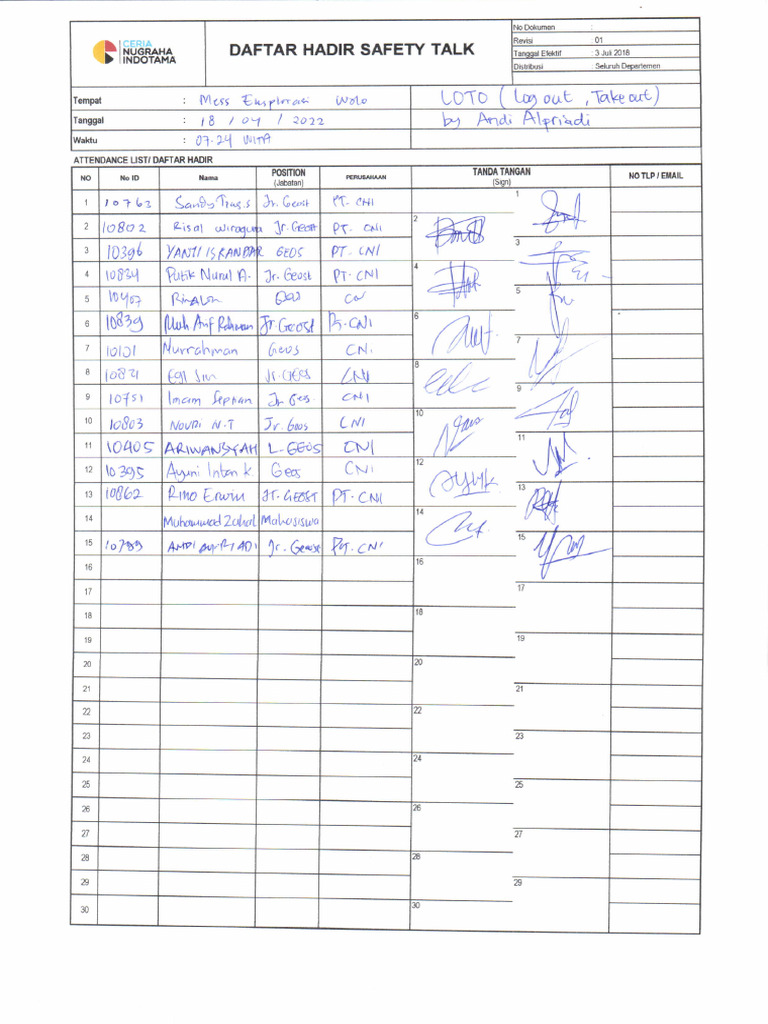 CERIA
NUGRAHA
INDOTAMA
DAFTAR HADIR SAFETY TALK
No Dokumen :
Revisi : 01
Tanggal Efektif : 3 Juli 2018
Distribusi : Seluruh Departemen
Tempat : Mess Eksplorasi Wolo
Tanggal : 18 / 04 / 2022
Waktu : 07.24 WITA
LOTO (Log out, Take out)
by Andi Alpriadi
ATTENDANCE LIST/ DAFTAR HADIR
NO No ID Nama POSITION (Jabatan) PERUSAHAAN TANDA TANGAN (Sign) NO TLP / EMAIL
1 10762 Sandy Jr. Geost PT. CNI 1
2 10802 Risal Wiraguna Jr. GEOST PT. CNI 2
3 10396 YANTI ISKANDAR GEOS PT. CNI 3
4 10834 Putik Nurul A. Jr. Geost PT. CNI 4
5 10407 CNI 5
6 10839 Muh Arif Rahman Jr GEOST PT. CNI 6
7 10101 Nurrahman Geos CNI 7
8 10821 Egi Jr. GEOS CNI 8
9 10751 Imam Septian Jr. Geos. CNI 9
10 10803 NOURI N.T Jr. Geos CNI 10
11 10405 ARIWANSYAH L. GEOS CNI 11
12 10395 Ayuni Intan K. Geos CNI 12
13 10862 Rino Erwin JR. GEOST PT. CNI 13
14 Muhammad Zuhal Mahasiswa 14
15 10799 ANDI ALPRIADI Jr. Geost PT. CNI 15
16 16
17 17
18 18
19 19
20 20
21 21
22 22
23 23
24 24
25 25
26 26
27 27
28 28
29 29
30 30